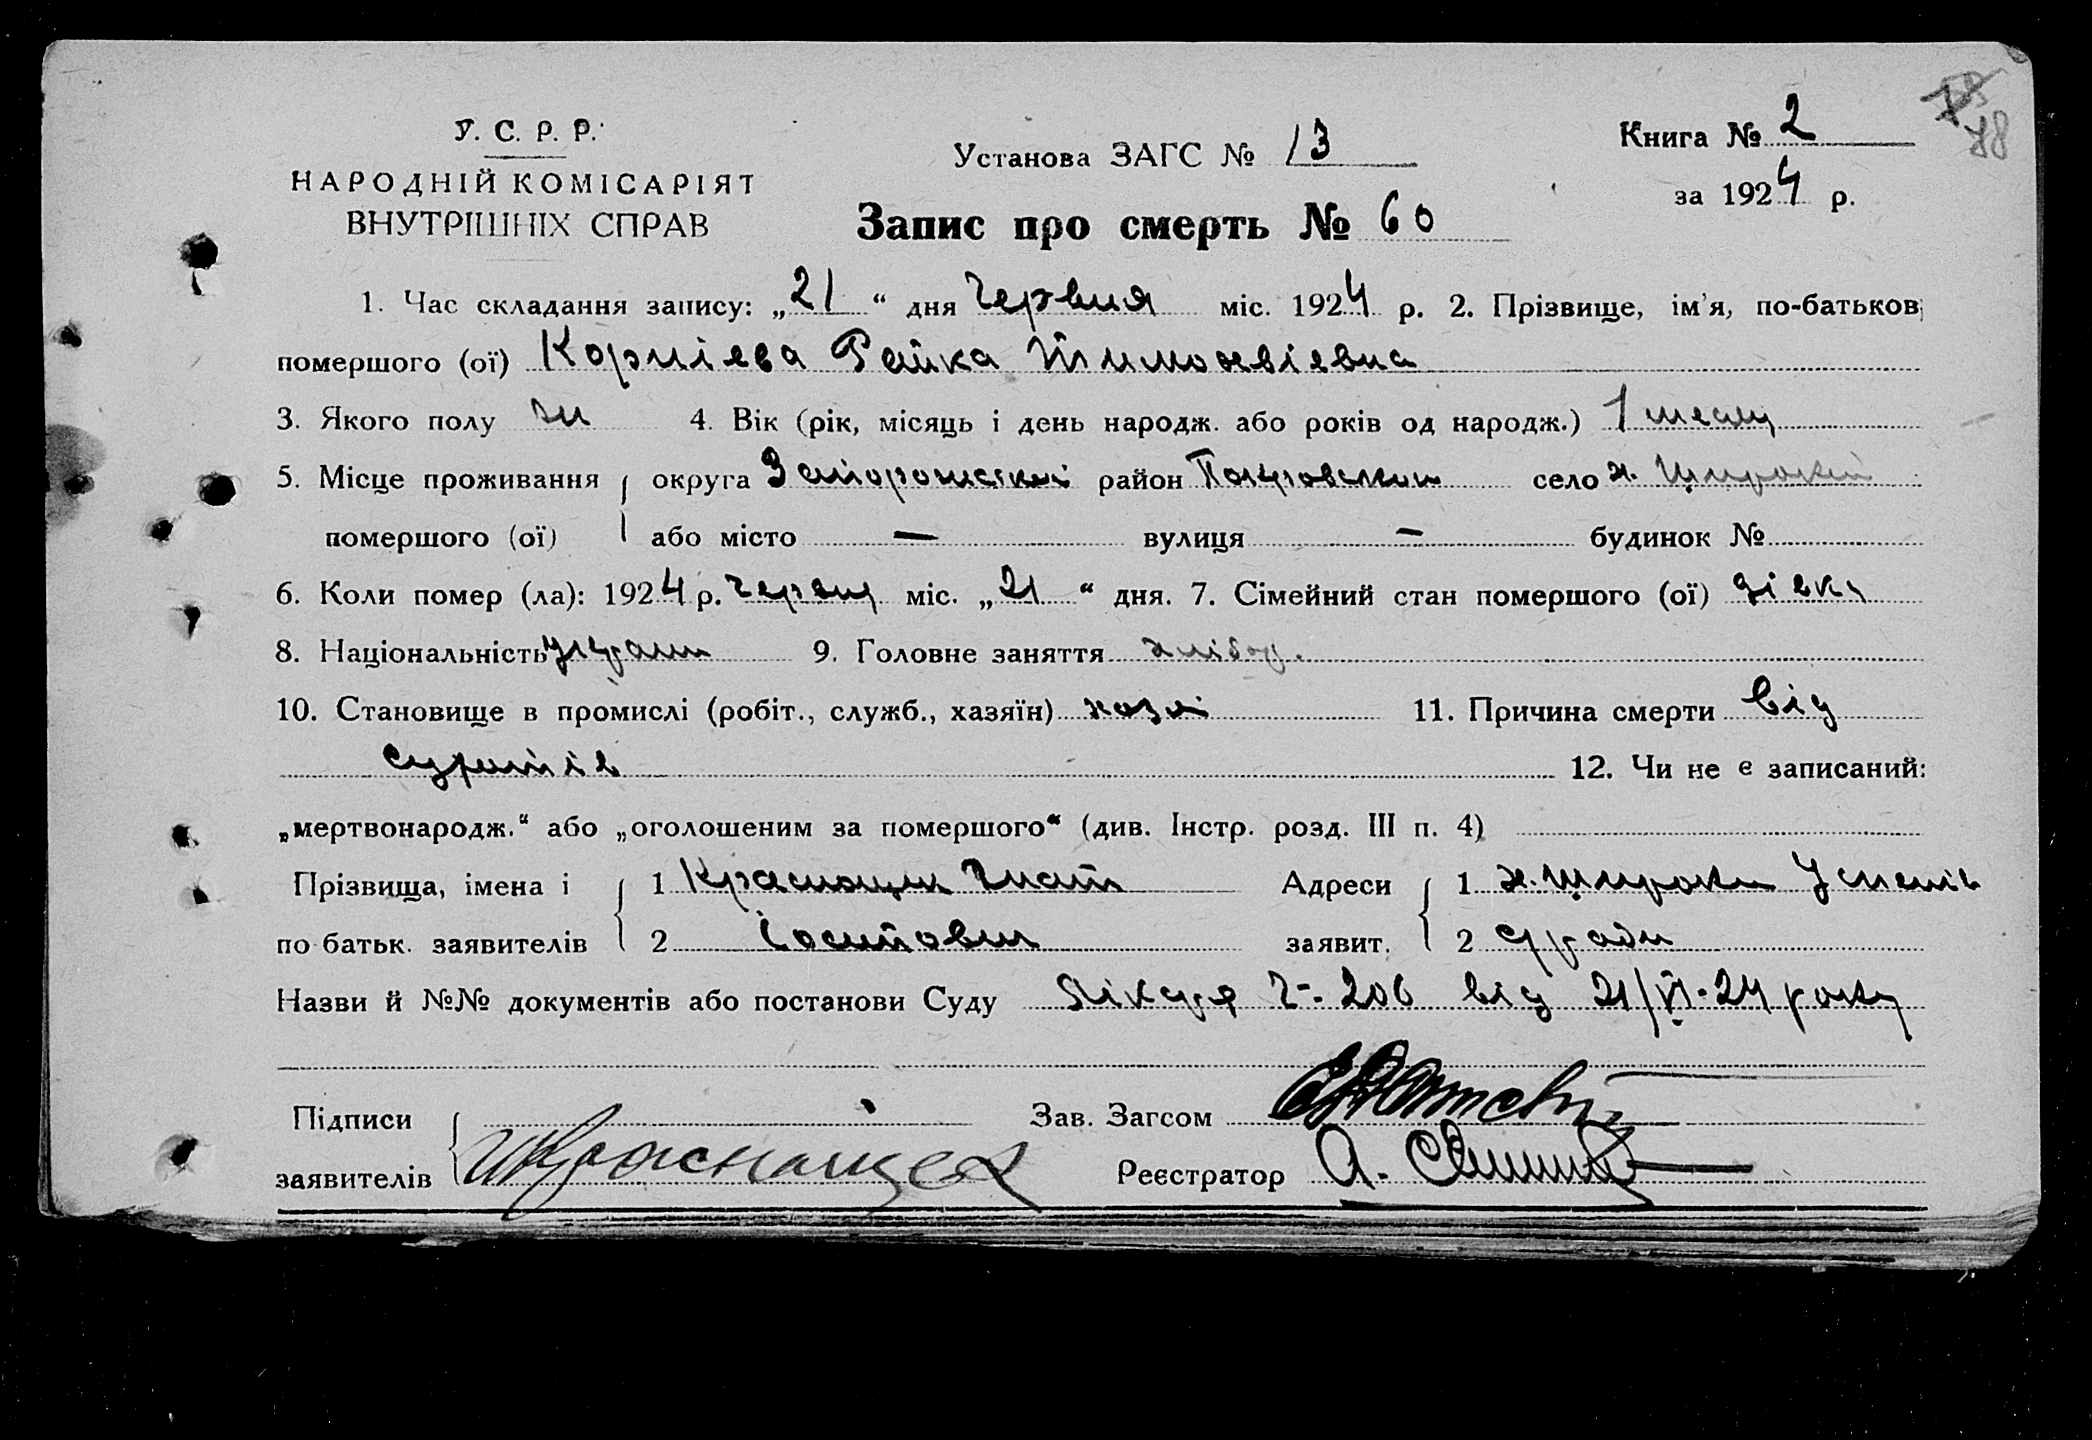 У. С. Р. Р.
НАРОДНІЙ КОМІСАРІЯТ
ВНУТРІШНІХ СПРАВ
Установа ЗАГС № 13
Книга № 2
за 1924 р.
78
Запис про смерть № 60
1. Час складання запису: „21“ дня Червня міс. 1924 р. 2. Прізвище, ім'я, по-батькові
помершого (ої) Корнієва Райка Тимофвіевна
3. Якого полу жи 4. Вік (рік, місяць і день народж. або років од народж.) 1 месяц
5. Місце проживання округа район село х. Широкий
помершого (ої) або місто — вулиця — будинок №
6. Коли помер (ла): 1924 р. червня міс. „21“ дня. 7. Сімейний стан помершого (ої) дівка
8. Національність 9. Головне заняття хлібор.
10. Становище в промислі (робіт., служб., хазяїн) хазяі 11. Причина смерти від
12. Чи не є записаний:
„мертвонародж.“ або „оголошеним за помершого“ (див. Інстр. розд. III п. 4)
Прізвища, імена і 1 Краснощек Гнат Адреси 1 х. Широки
по батьк. заявителів 2 заявит. 2
Назви й №№ документів або постанови Суду Лікаря ч-. 206 від 21/VI-24 року
Підписи Зав. Загсом
заявителів Краснощек Реєстратор